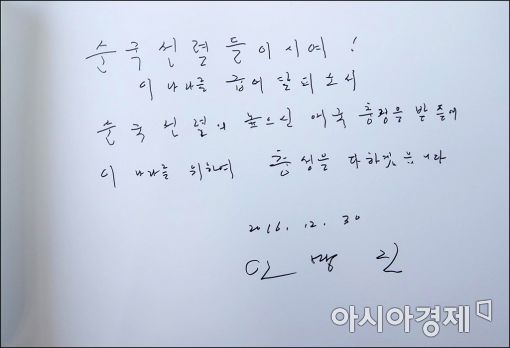 순국선렬들이시여!
이 나라를 굽어 살피소서
순국선렬의 높으신 애국충정을 받들어
이 나라를 위하여 충성을 다하겠읍니다
2016. 12. 30
인명진
아시아경제